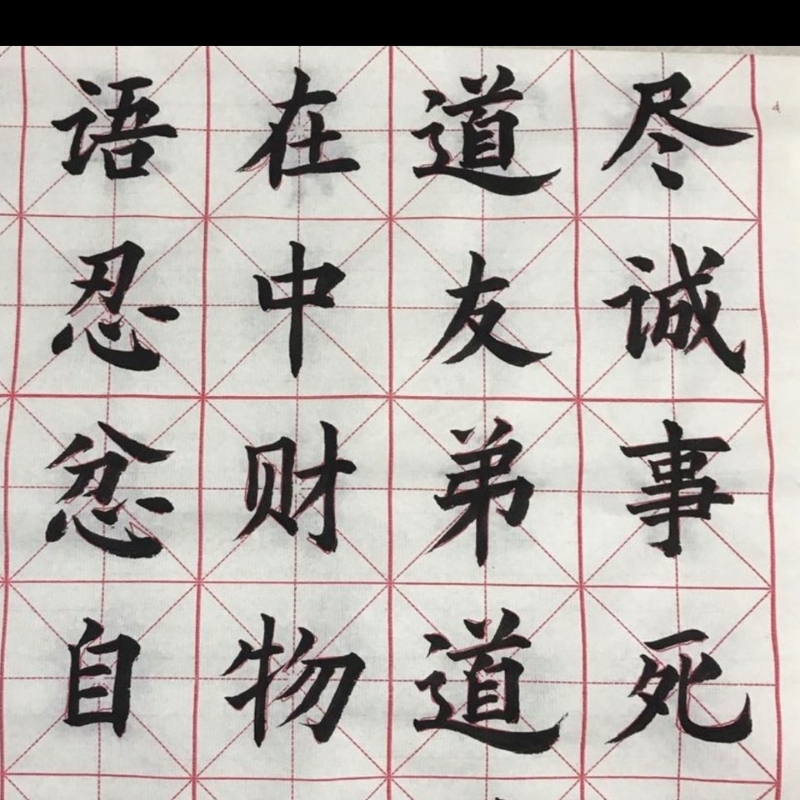 尽诚事死
道友弟道
在中财物
语忍忿自